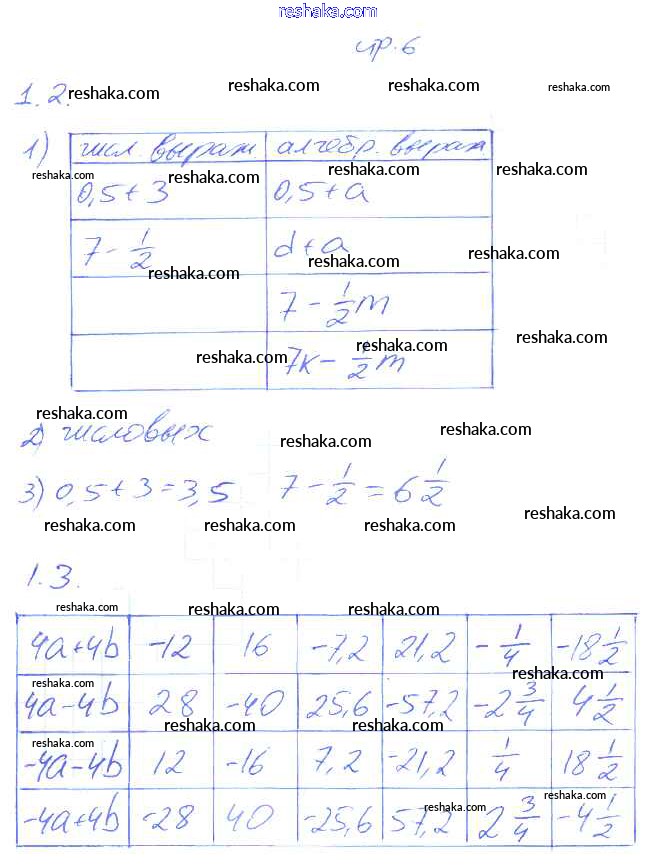 reshaka.com
стр. 6
1.2. reshaka.com reshaka.com reshaka.com
1) числ. выраж. алгебр. выраж
reshaka.com reshaka.com reshaka.com
0,5+3 0,5+a
7 - 1/2 d+a
reshaka.com reshaka.com reshaka.com
7 - 1/2 m
reshaka.com reshaka.com reshaka.com
7k - 1/2 m
reshaka.com
2) числовых reshaka.com reshaka.com
3) 0,5+3=3,5 7 - 1/2 = 6 1/2
reshaka.com reshaka.com reshaka.com reshaka.com
1.3.
reshaka.com reshaka.com reshaka.com
4a+4b -12 16 -7,2 21,2 -1/4 -18 1/2
reshaka.com reshaka.com
4a-4b 28 -40 25,6 -57,2 -2 3/4 4 1/2
reshaka.com reshaka.com reshaka.com
-4a-4b 12 -16 7,2 -21,2 1/4 18 1/2
reshaka.com reshaka.com
-4a+4b -28 40 -25,6 57,2 2 3/4 -4 1/2